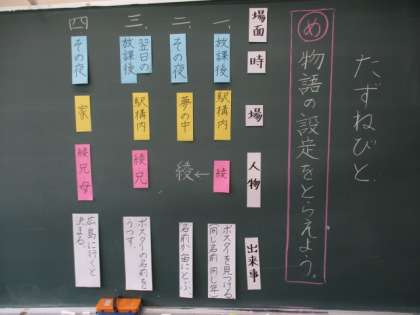 たずねびと
め 物語の設定をとらえよう。
場面
時
場
人物
出来事
一.
放課後
駅構内
綾
ポスターを見つける
(同じ名前 同じ年)
二.
その夜
夢の中
綾 ←
三.
翌日の
放課後
駅構内
綾兄
ポスターの名前を
うつす。
四
その夜
家
綾兄母
広島に行くと